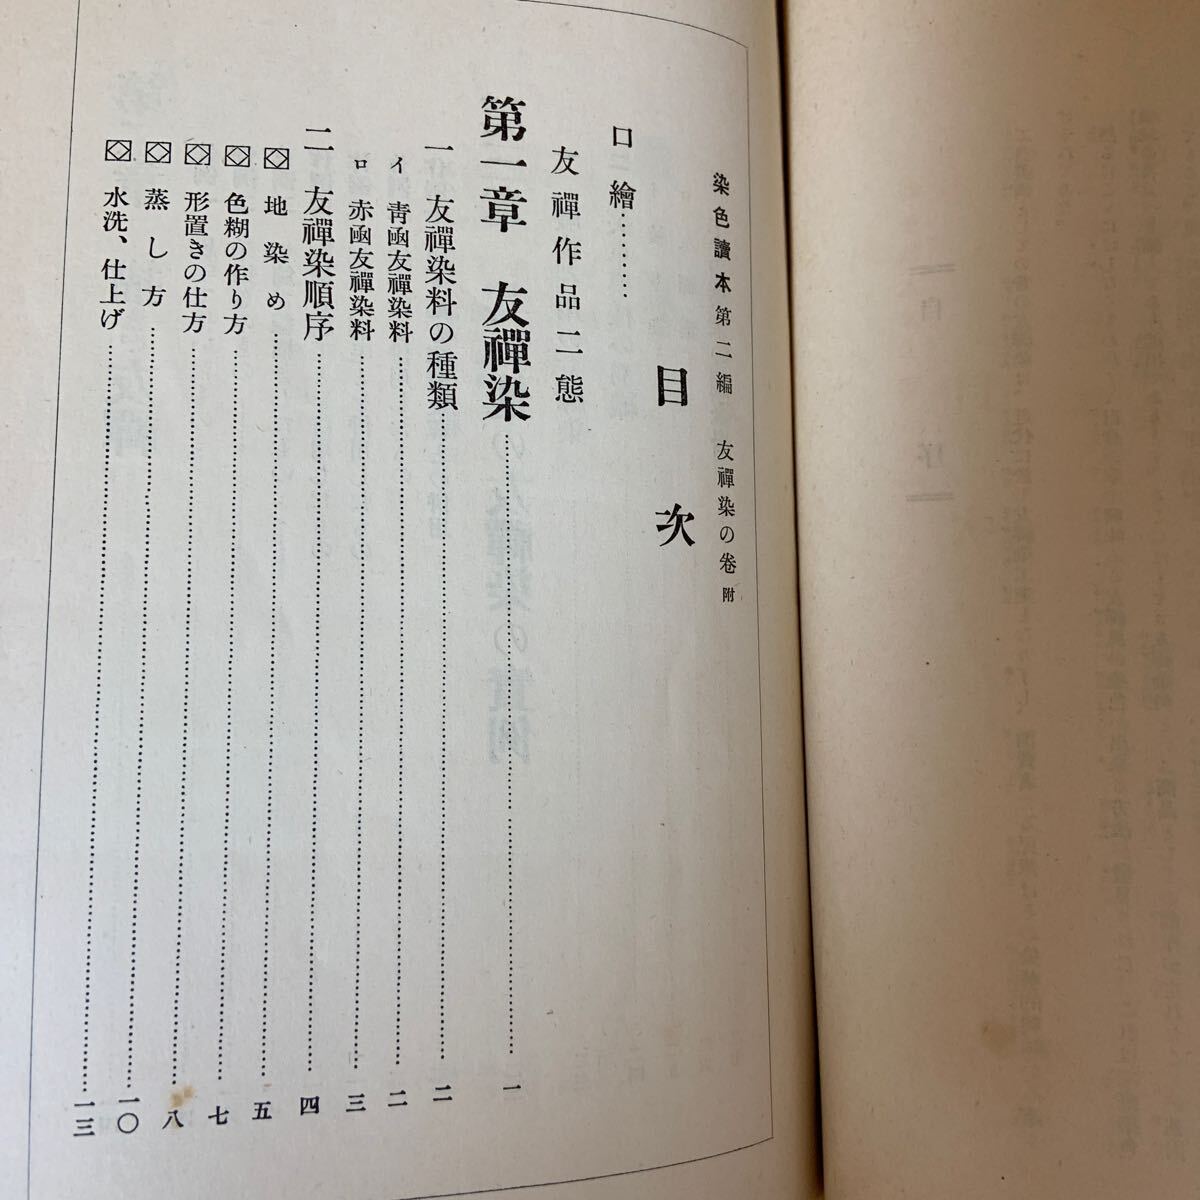 染色讀本第二編 友禪染の卷 附
目次
口繪………
友禪作品二態
第一章 友禪染………一
一 友禪染料の種類………二
イ 靑凾友禪染料………二
ロ 赤凾友禪染料………三
二 友禪染順序………四
地染め………五
色糊の作り方………七
形置きの仕方………八
蒸し方………一〇
水洗、仕上げ………一三